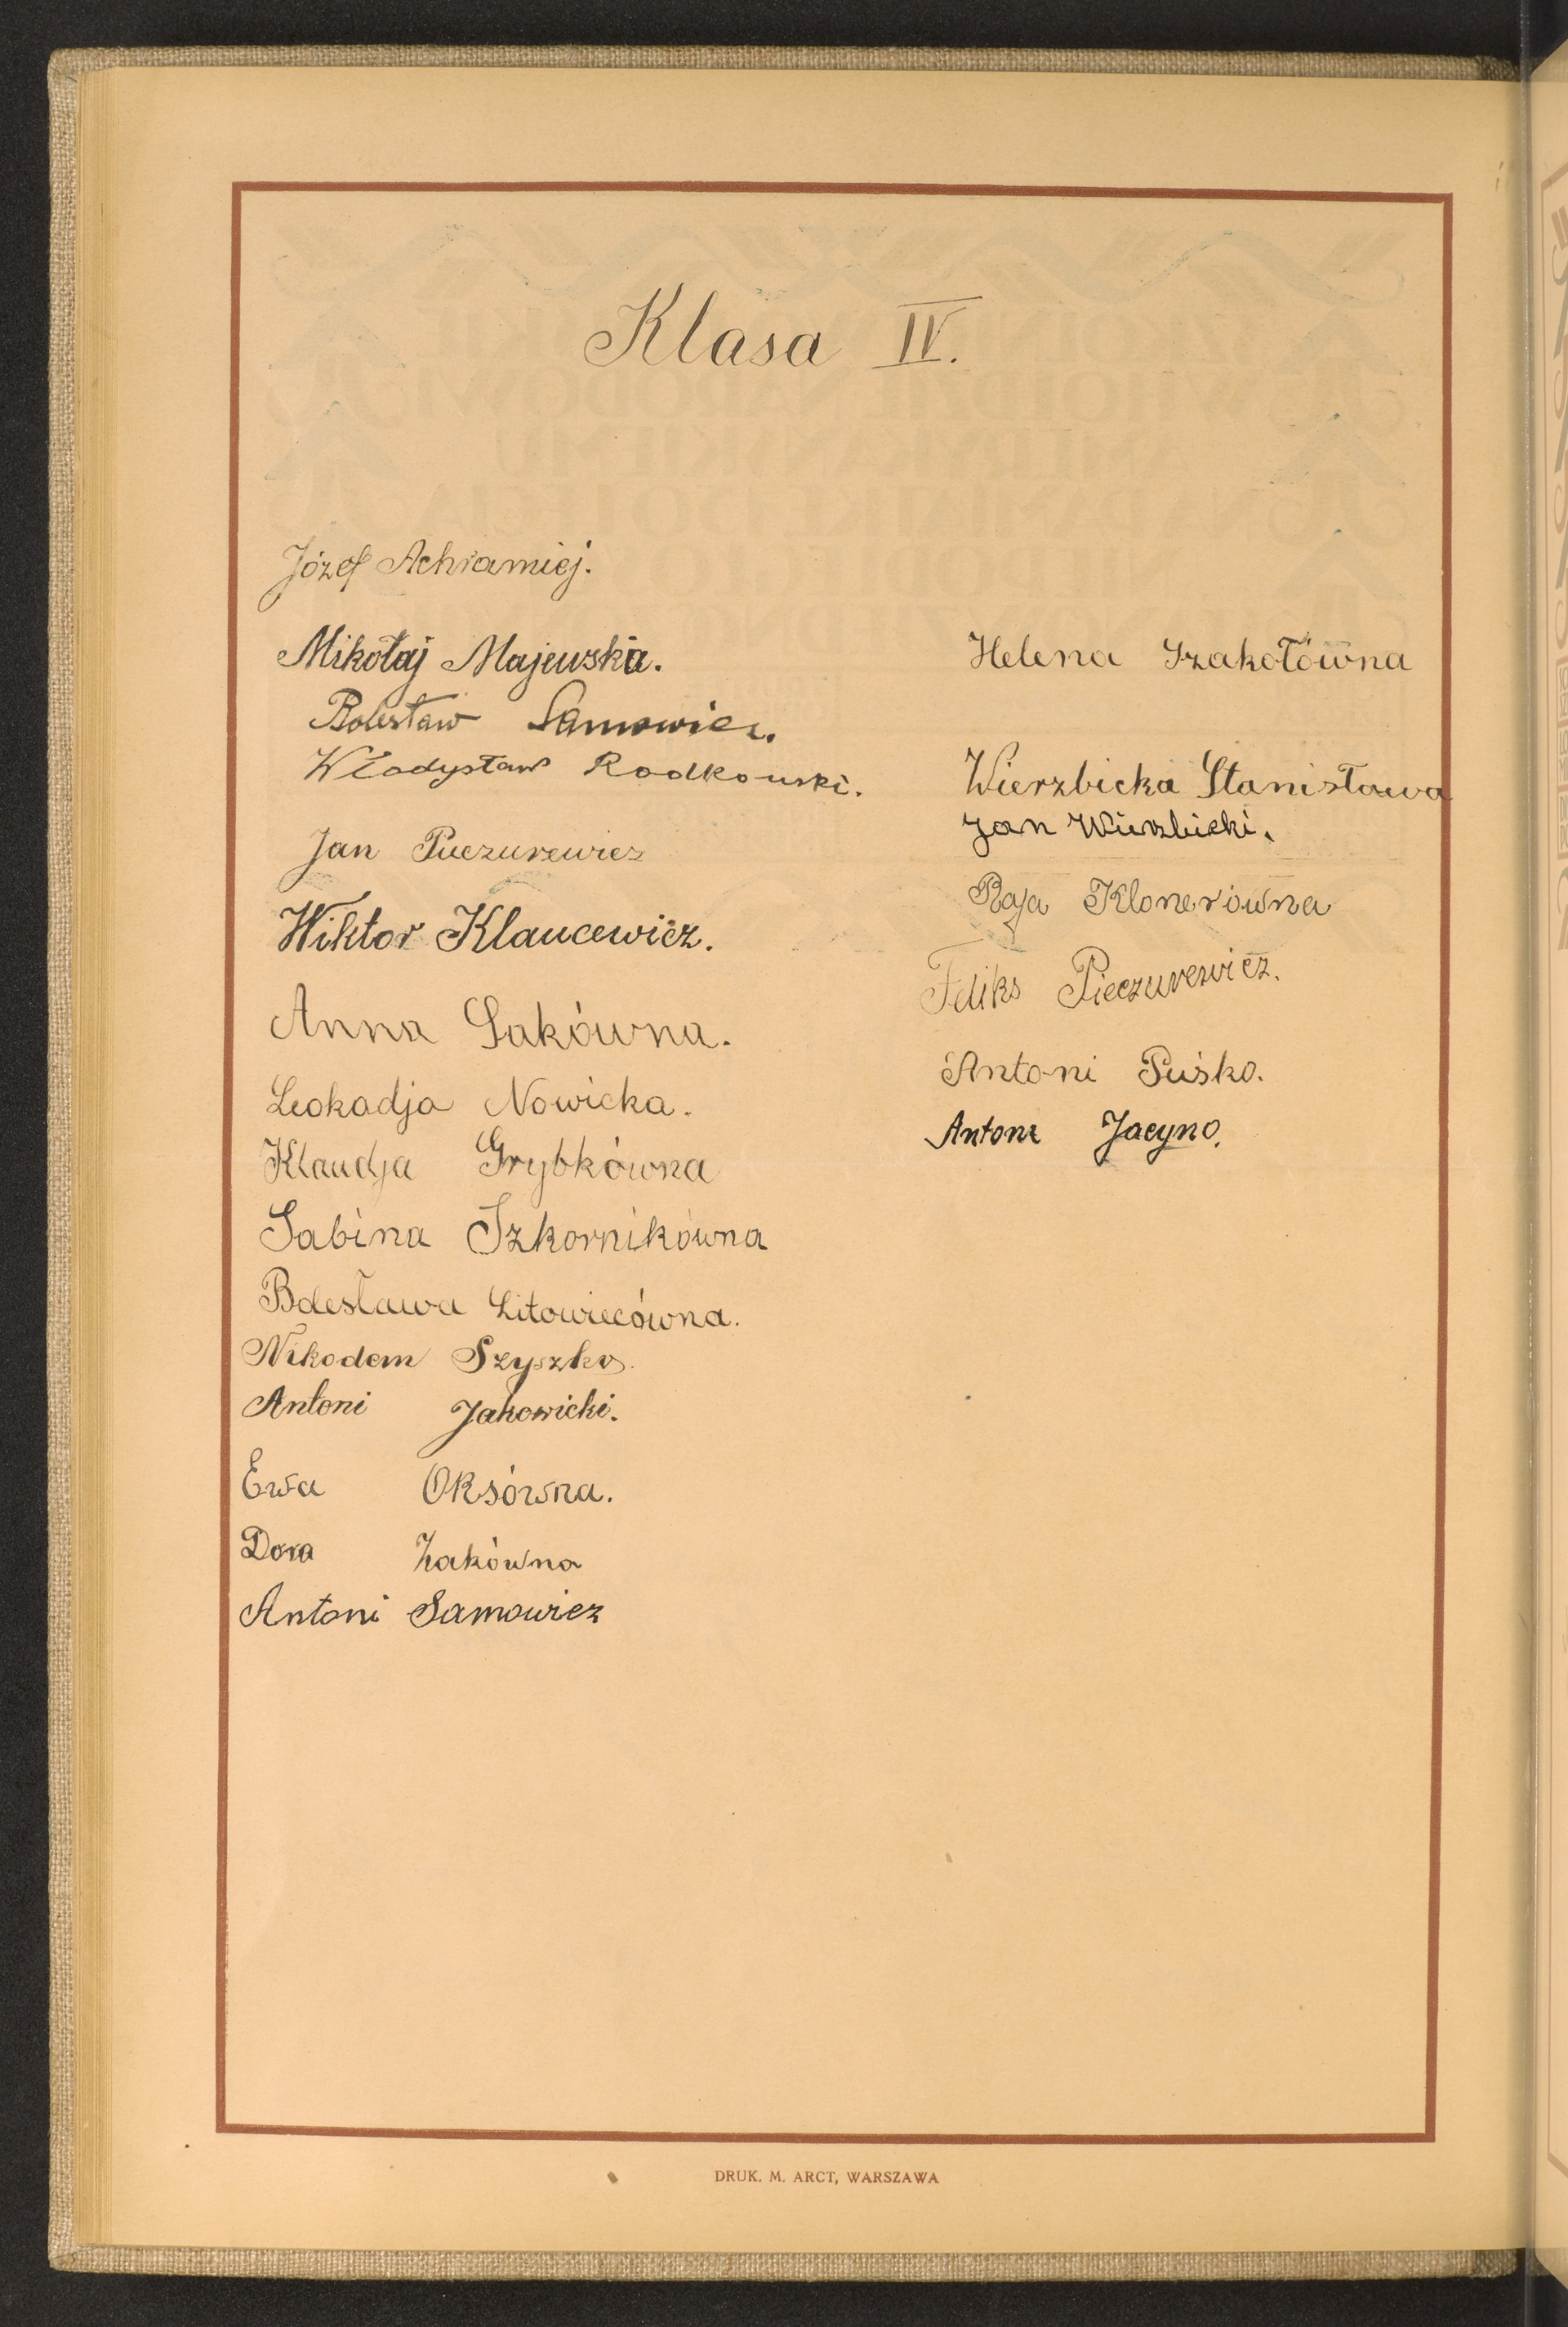 Klasa IV.
Józef Achramiej.
Mikołaj Majewska.
Bolesław Samowicz.
Władysław Rodkowski.
Jan Pieczurewicz
Wiktor Klaucewicz.
Anna Sakówna.
Leokadja Nowicka.
Klaudja Grybkówna
Sabina Szkornikówna
Bolesława Litowiecówna.
Nikodem Szyszko.
Antoni Jakowicki.
Ewa Oksówna.
Dora Żakówna
Antoni Samowicz
Helena Szakołówna
Wierzbicka Stanisława
Jan Wierzbicki.
Raja Klonerówna
Feliks Pieczurewicz.
Antoni Puśko.
Antoni Jacyno.
DRUK. M. ARCT, WARSZAWA